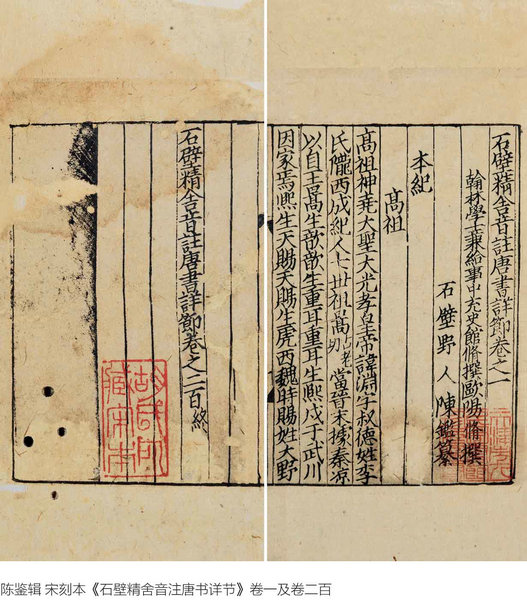 石壁精舍音註唐書詳節卷之一
翰林學士兼給事中充史館脩撰歐陽脩撰
石壁野人陳鑑纂
本紀
高祖
高祖神堯大聖大光孝皇帝諱淵字叔德姓李
氏隴西成紀人七世祖暠古老切當晉末據秦涼
以自王暠生歆歆生重耳重耳生熙戍于武川
因家焉熙生天賜天賜生虎西魏時賜姓大野
石壁精舍音註唐書詳節卷之二百終
胡氏
藏宋本
陈鉴辑 宋刻本《石壁精舍音注唐书详节》卷一及卷二百